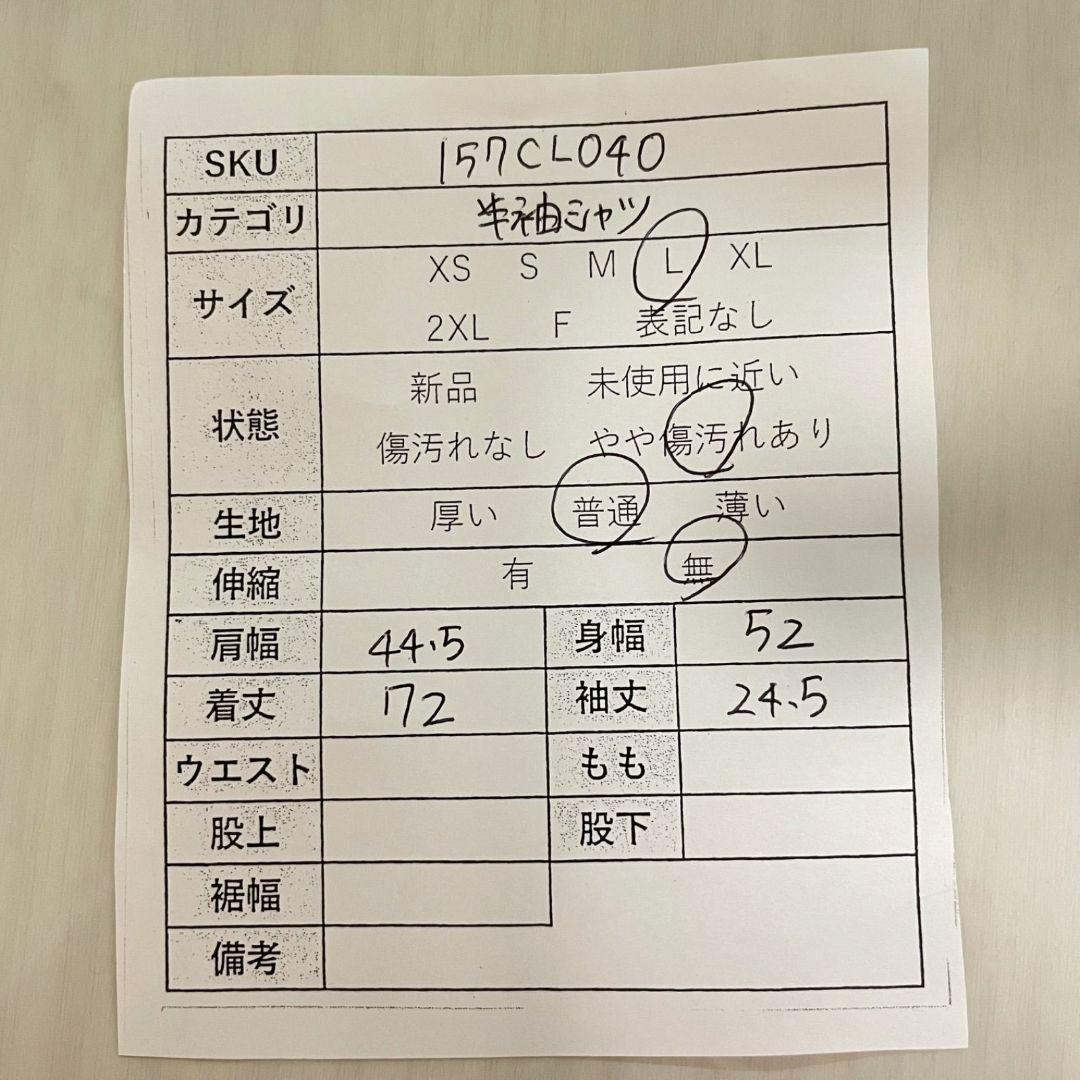 SKU 157CL040
カテゴリ 半袖シャツ
サイズ XS S M L XL
2XL F 表記なし
状態 新品 未使用に近い
傷汚れなし やや傷汚れあり
生地 厚い 普通 薄い
伸縮 有 無
肩幅 44.5 身幅 52
着丈 72 袖丈 24.5
ウエスト もも
股上 股下
裾幅
備考